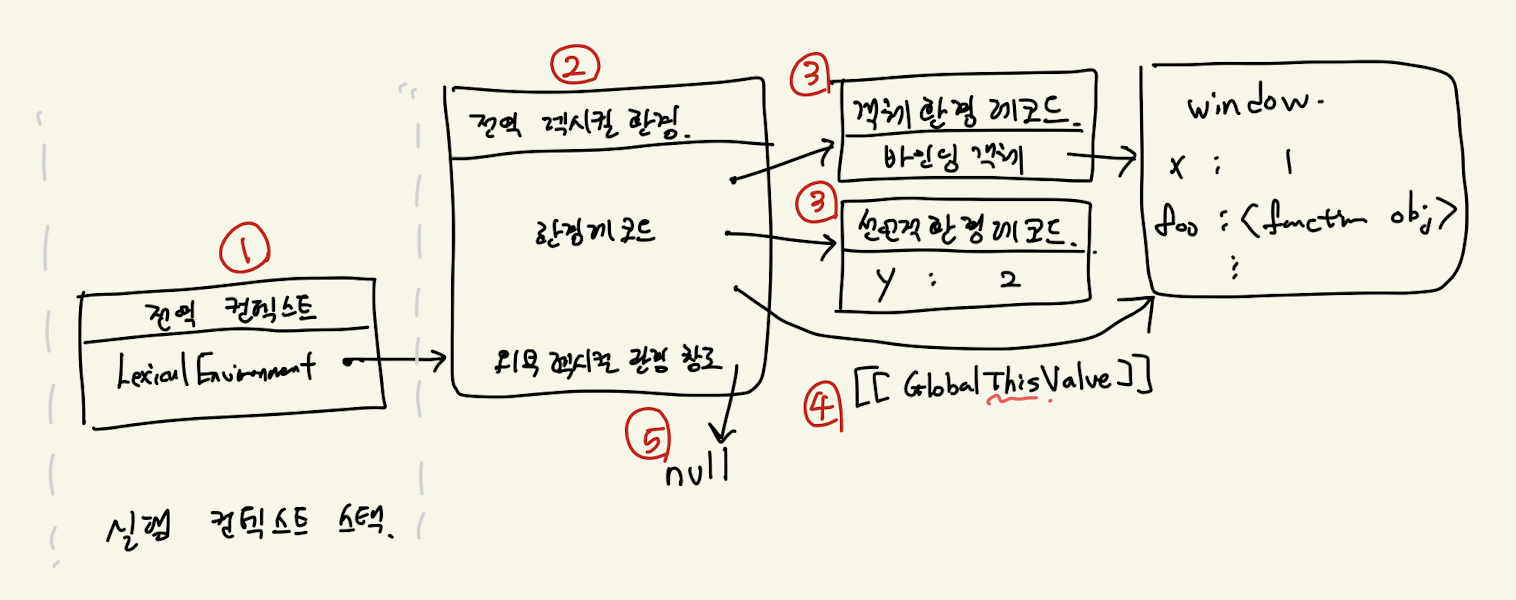 ①
전역 컨텍스트
Lexical Environment
실행 컨텍스트 스택.
②
전역 렉시컬 환경.
환경레코드
외부 렉시컬 환경 참조
⑤
null
③
객체 환경 레코드.
바인딩 객체
③
선언적 환경 레코드.
y : 2
④
[[GlobalThisValue]]
window.
x : 1
foo : <function obj>
⋮